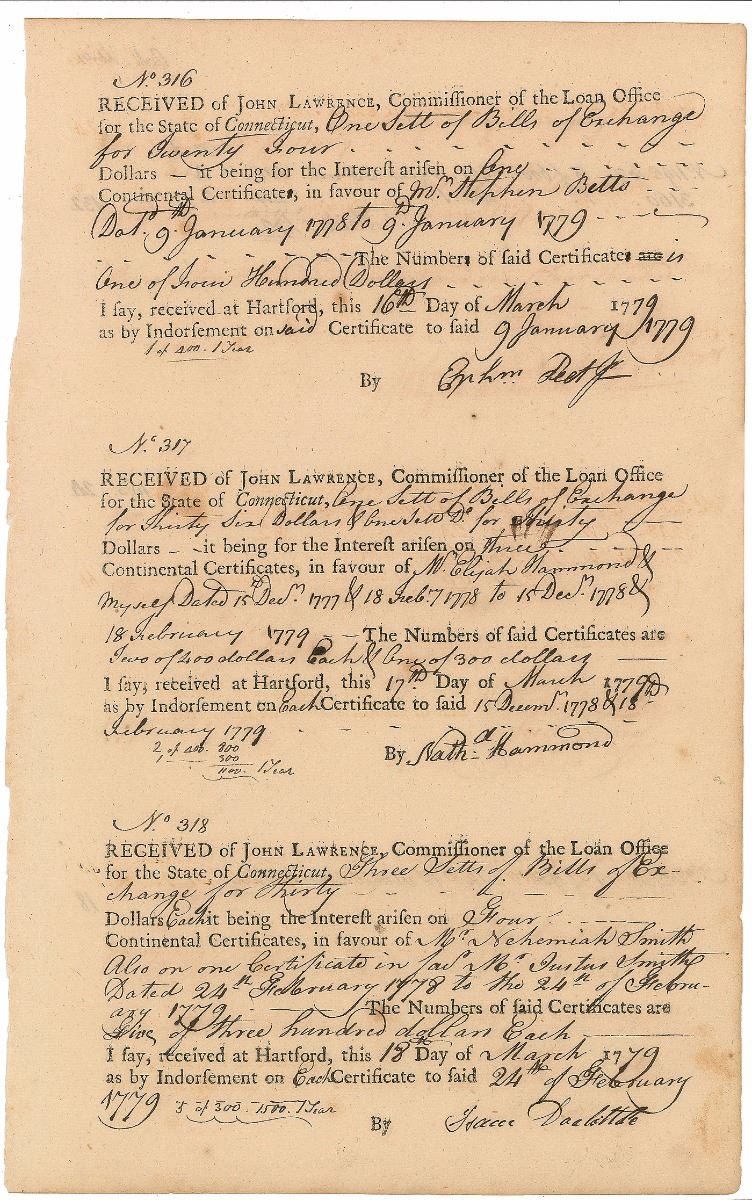 No. 316
RECEIVED of JOHN LAWRENCE, Commissioner of the Loan Office
for the State of Connecticut, One Sett of Bills of Exchange
for Twenty Four
Dollars — it being for the Interest arisen on One
Continental Certificates, in favour of Mr. Stephen Betts
Dat.d 9.th January 1778 to 9.th January 1779
The Numbers of said Certificates are is
One of Four Hundred Dollars
I say, received at Hartford, this 16th Day of March 1779
as by Indorsement on said Certificate to said 9 January 1779
1 of 400. 1 Year
By Ephm
No. 317
RECEIVED of JOHN LAWRENCE, Commissioner of the Loan Office
for the State of Connecticut, One Sett of Bills of Exchange
for Thirty Six Dollars & One Sett Do. for Thirty
Dollars — it being for the Interest arisen on three
Continental Certificates, in favour of Mr. Elijah Hammond &
myself Dated 15th Decm. 1777 & 18 Feby 1778 to 15 Decm. 1778 &
18 February 1779 — The Numbers of said Certificates are
Two of 400 dollars Each & One of 300 dollars
I say, received at Hartford, this 17th Day of March 1779
as by Indorsement on Each Certificate to said 15 Decemr. 1778 & 18th
February 1779
2 of 400. 800
1 300
1100. 1 Year
By Nathl. Hammond
No. 318
RECEIVED of JOHN LAWRENCE, Commissioner of the Loan Office
for the State of Connecticut, Three Setts of Bills of Ex-
change for Thirty
Dollars Each it being the Interest arisen on Four
Continental Certificates, in favour of Mr. Nehemiah Smith
Also on one Certificate in favr. Mr. Justus Smith
Dated 24th February 1778 to the 24th of Febru-
ary 1779 The Numbers of said Certificates are
Five of three hundred dollars Each
I say, received at Hartford, this 18th Day of March 1779
as by Indorsement on Each Certificate to said 24th of February
1779 5 of 300. 1500. 1 Year
By Isaac Doolittle